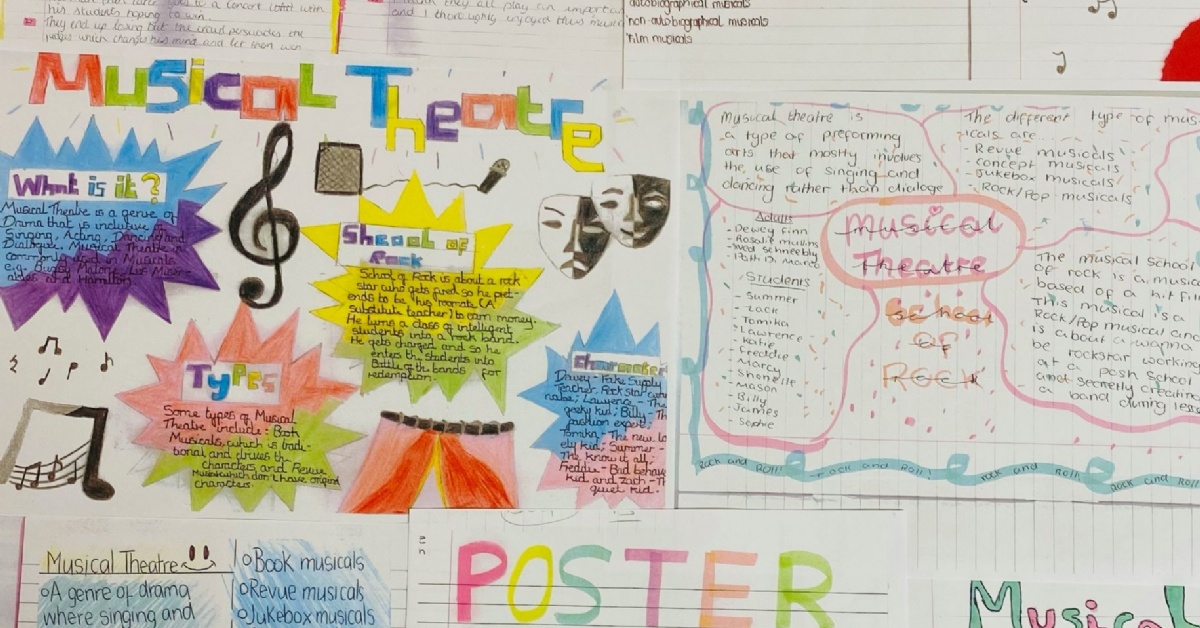 his students hoping to win.
They end up losing but the crowd persuades the
judges which changes his mind and let them win
and I thoroughly enjoyed this
autobiographical musicals
non-autobiographical musicals
film musicals
Musical Theatre
What is it?
Musical Theatre is a genre of
Drama that is inclutive of
Singing, Acting, Dancing and
Dialogue. Musical Theatre is
commonly used in Musicals
e.g. Bugsy Malone, Les Miser-
ables and Hamilton.
School of
Rock
School of Rock is about a rock
star who gets fired so he pret-
ends to be his roomate (A
substitute teacher) to earn money.
He turns a class of intelligent
students into a rock band.
He gets charged and so he
enters the students into
Battle of the bands for
redemption.
Types
Some types of Musical
Theatre include:- Book
Musicals, which is tradi-
tional and drives the
characters and Revue
Musicals which don't have original
characters.
Character
Dewey - Fake Supply
Teacher, Rock star
Lawrence - The
geeky kid; Billy - Th
fashion expert;
Tomika - The new lo
ely kid; Summer -
The know it all;
Freddie - Bad behav
kid and Zach - T
quiet kid.
Musical theatre is
a type of preforming
arts that mostly involves
the use of singing and
dancing rather than dialoge
The different type of mus-
icals are...
- Revue musicals
- concept musicals
- Jukebox musicals
- Rock/Pop musicals
Musical
Theatre
School
OF
ROCK
Adults
- Dewey Finn
- Rosalie mullins
- Ned Schneebly
- Patti Di Marco
Students
- Summer
- Zack
- Tomika
- Lawrence
- Katie
- Freddie
- Marcy
- Shonelle
- Mason
- Billy
- James
- Sophie
The musical School
of rock is a music
based of a hit fil
This musical is a
Rock/Pop musical and
is about a wanna
be rockstar working
at a posh school
and secretly creating
a band during less
Rock and Roll!
rock and Roll!
rock and Roll
Rock and Roll
Musical Theatre
o A genre of drama
where singing and
o Book musicals
o Revue musicals
o Jukebox musicals
POSTER
Musical